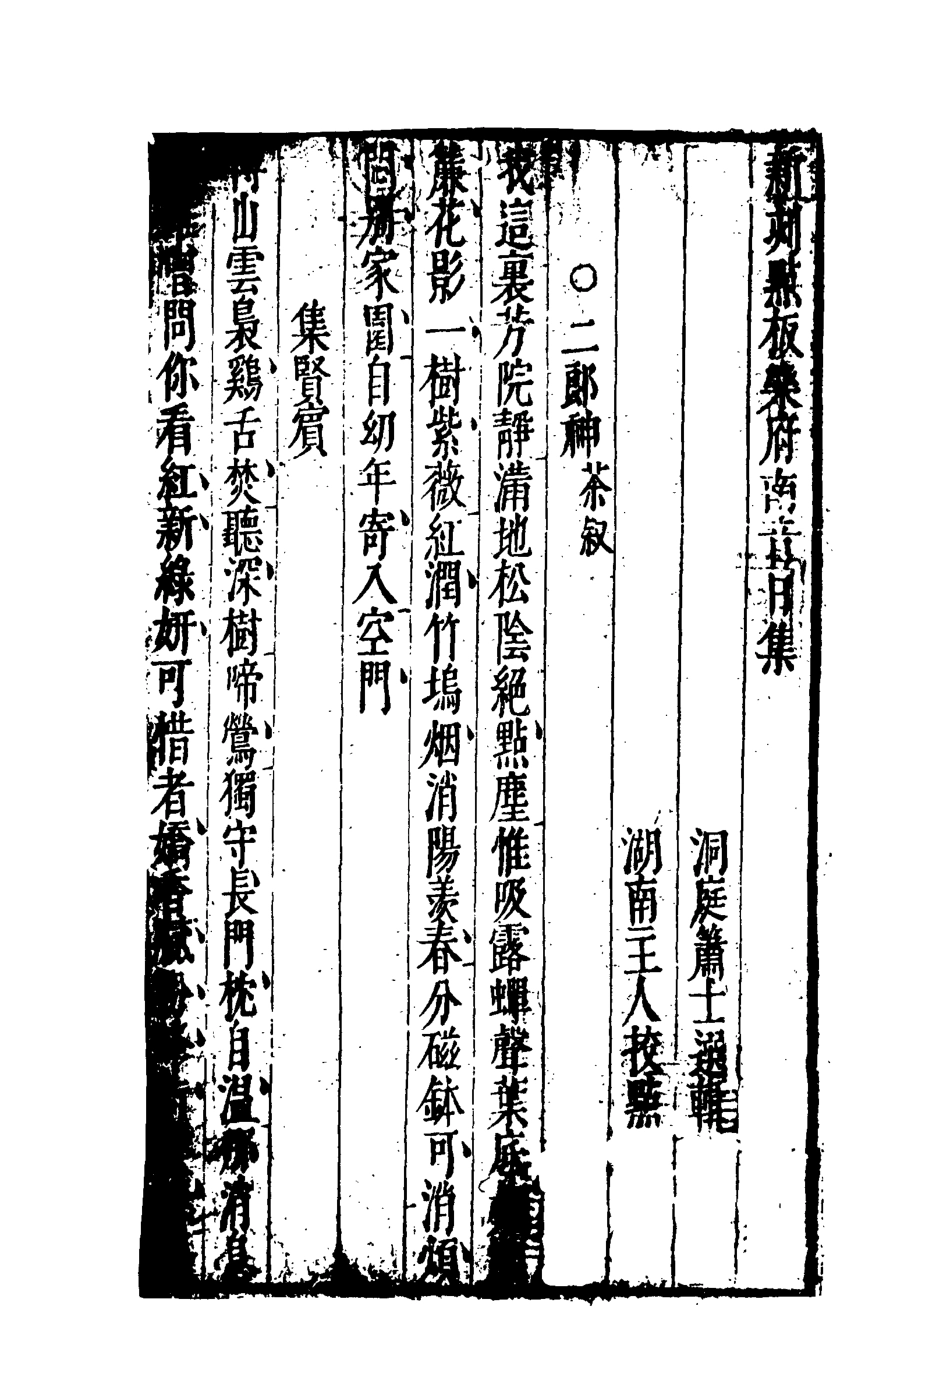 新刻點板樂府南音日集
洞庭簫士選輯
湖南主人挍點
○二郎神 茶叙
我這裏芳院靜滿地松陰絕點塵惟吸露蟬聲葉底
簾花影一樹紫薇紅潤竹塢烟消陽羨春分磁鉢可消煩
悶別家園自幼年寄入空門
集賢賓
山雲裊裊鷄舌焚聽深樹啼鶯獨守長門枕自溫那消息
借問你看紅新綠妍可惜者嬌香膩粉